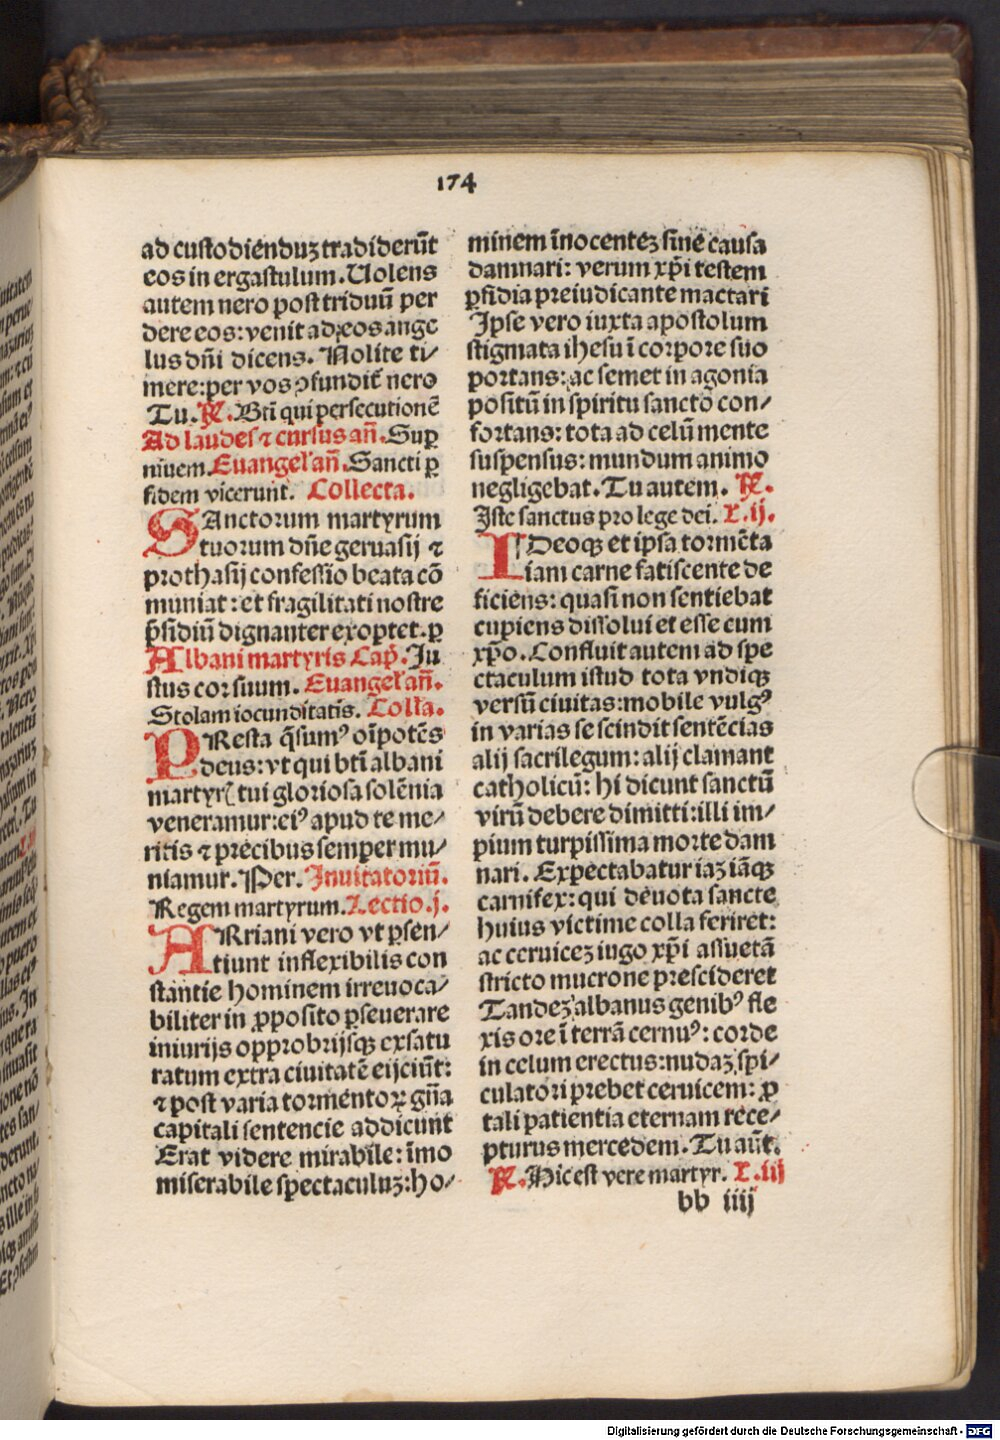 174
ad custodienduz tradiderūt
eos in ergastulum. Uolens
autem nero post triduū per
dere eos: venit ad eos ange
lus dn̄i dicens. Nolite ti/
mere: per vos ꝯfundit̄ nero
Tu. ℟. Bt̄i qui persecutionē
Ad laudes ⁊ cursus an̄. Suꝑ
niuem. Euangel̄ an̄. Sancti ꝑ
fidem vicerunt. Collecta.
SAnctorum martyrum
tuorum dn̄e geruasij ⁊
prothasij confessio beata cō
muniat: et fragilitati nostre
p̄sidiū dignanter exoptet. ꝑ
Albani martyris Cap̄. Ju
stus cor suum. Euangel̄ an̄.
Stolam iocunditatis. Coll̄a.
PResta q̄sumꝰ oīpotēs
deus: vt qui bt̄i albani
martyrꝭ tui gloriosa solēnia
veneramur: eiꝰ apud te me/
ritis ⁊ precibus semper mu/
niamur. Per. Inuitatoriū.
Regem martyrum. Lectio. j.
ARriani vero vt p̄sen/
tiunt inflexibilis con
stantie hominem irreuoca/
biliter in ꝓposito ꝑseuerare
iniurijs opprobrijsqꝫ exsatu
ratum extra ciuitatē eijciūt:
⁊ post varia tormentoꝝ gn̄a
capitali sentencie addicunt
Erat videre mirabile: īmo
miserabile spectaculuz: ho/
minem īnocentez sine causa
damnari: verum xp̄i testem
ꝑfidia preiudicante mactari
Ipse vero iuxta apostolum
stigmata ihesu ī corpore suo
portans: ac semet in agonia
positū in spiritu sancto con/
fortans: tota ad celū mente
suspensus: mundum animo
negligebat. Tu autem. ℟.
Iste sanctus pro lege dei. L. ij.
IDeoqꝫ et ipsa tormēta
iam carne fatiscente de
ficiens: quasi non sentiebat
cupiens dissolui et esse cum
xp̄o. Confluit autem ad spe
ctaculum istud tota vndiqꝫ
versū ciuitas: mobile vulgꝰ
in varias se scindit sentēcias
alij sacrilegum: alij clamant
catholicū: hi dicunt sanctū
virū debere dimitti: illi im/
pium turpissima morte dam
nari. Expectabatur iaz iāqꝫ
carnifex: qui deuota sancte
huius victime colla feriret:
ac ceruicez iugo xp̄i assuetā
stricto mucrone prescideret
Tandez albanus genibꝰ fle
xis ore ī terrā cernuꝰ: corde
in celum erectus: nudaz spi/
culatori prebet ceruicem: ꝓ
tali patientia eternam rece/
pturus mercedem. Tu aūt.
℟. Hic est vere martyr. L. iij
bb iiij
Digitalisierung gefördert durch die Deutsche Forschungsgemeinschaft - DFG